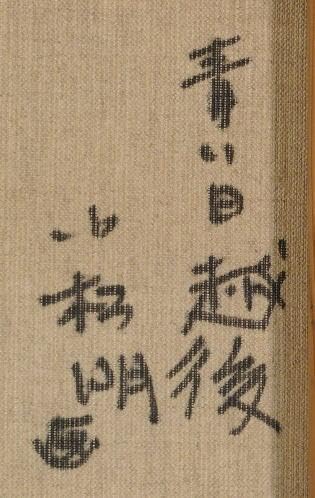 青い日越後
小松明画